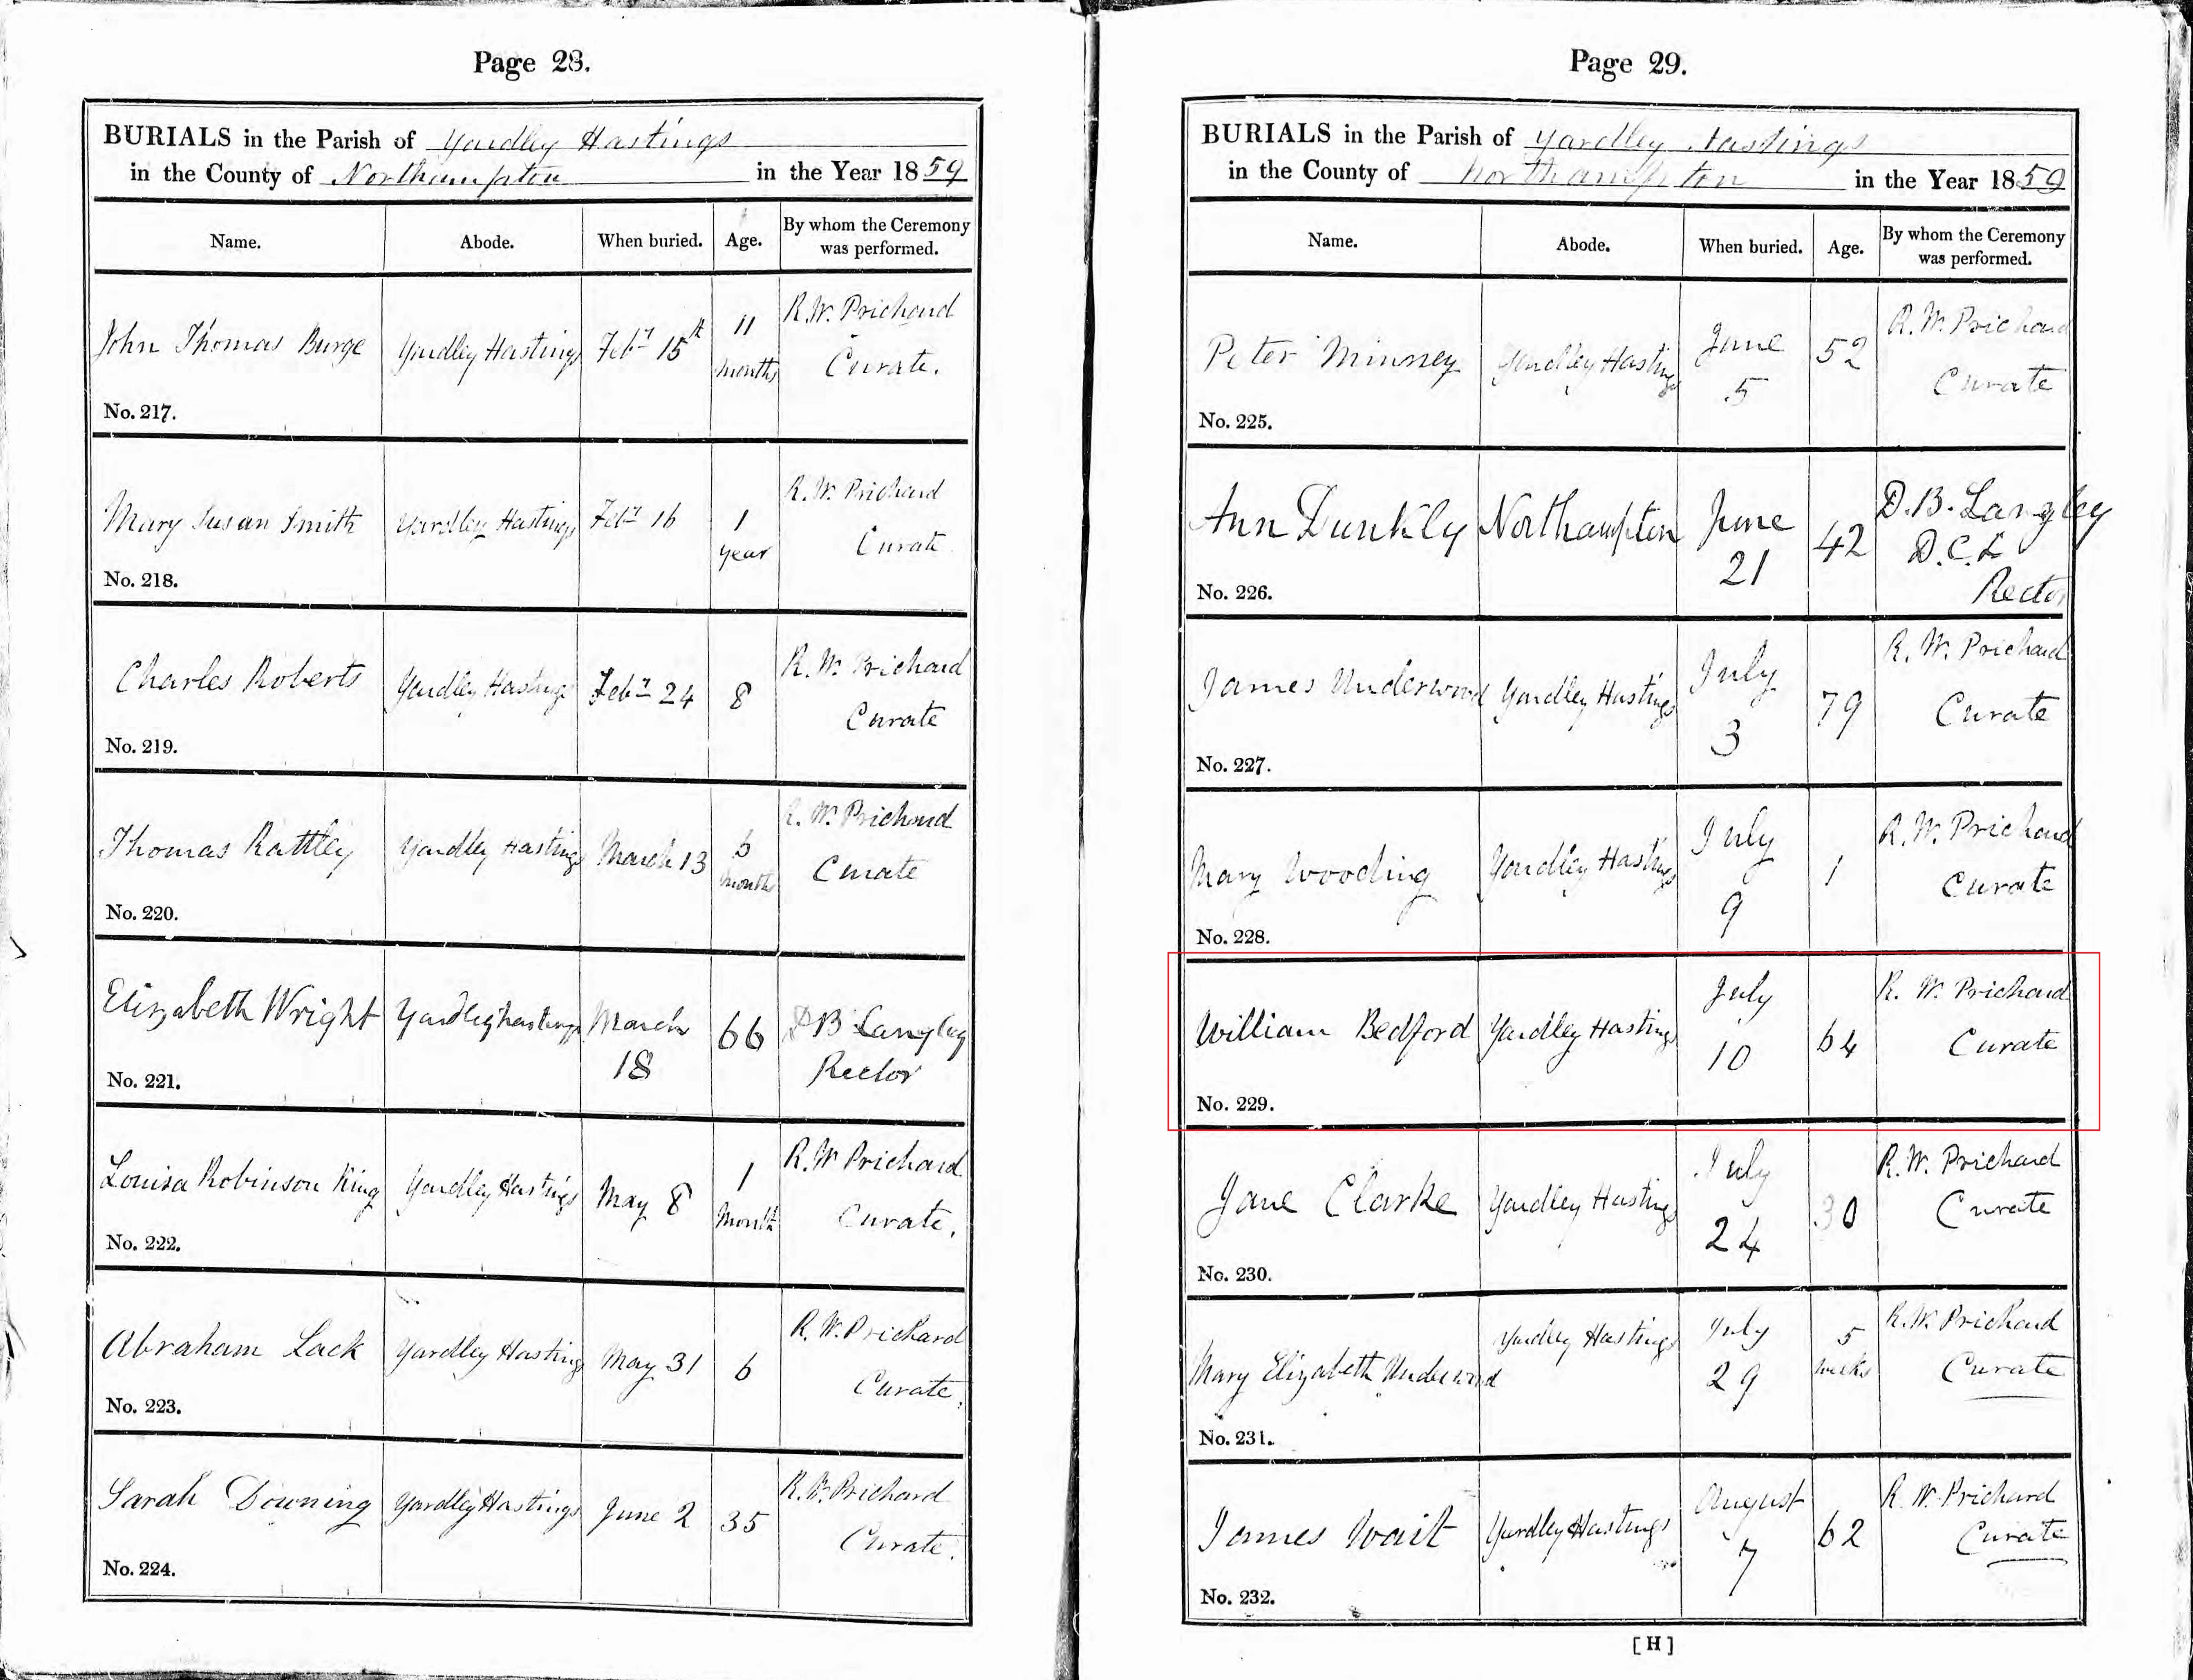 Page 28.
BURIALS in the Parish of Yardley Hastings
in the County of Northampton in the Year 1859
Name. Abode. When buried. Age. By whom the Ceremony was performed.
John Thomas Burge Yardley Hastings Feby 15th 11 months R.W. Prichard Curate.
No. 217.
Mary Susan Smith Yardley Hastings Feby 16 1 year R.W. Prichard Curate
No. 218.
Charles Roberts Yardley Hastings Feby 24 8 R.W. Prichard Curate
No. 219.
Thomas Rattley Yardley Hastings March 13 6 months R.W. Prichard Curate
No. 220.
Elizabeth Wright Yardley hastings March 18 66 D B Langley Rector
No. 221.
Louisa Robinson King Yardley Hastings May 8 1 Month R.W Prichard Curate.
No. 222.
Abraham Lack Yardley Hastings May 31 6 R.W. Prichard Curate.
No. 223.
Sarah Downing Yardley Hastings June 2 35 R.W. Prichard Curate.
No. 224.
Page 29.
BURIALS in the Parish of Yardley Hastings
in the County of Northampton in the Year 1859
Name. Abode. When buried. Age. By whom the Ceremony was performed.
Peter Minney Yardley Hastings June 5 52 R.W. Prichard Curate
No. 225.
Ann Dunkly Northampton June 21 42 D.B. Langley D.C.L Rector
No. 226.
James Underwood Yardley Hastings July 3 79 R.W. Prichard Curate
No. 227.
Mary Wooding Yardley Hastings July 9 1 R.W. Prichard Curate
No. 228.
William Bedford Yardley Hastings July 10 64 R.W. Prichard Curate
No. 229.
Jane Clarke Yardley Hastings July 24 30 R.W. Prichard Curate
No. 230.
Mary Elizabeth Underwood Yardley Hastings July 29 5 weeks R.W. Prichard Curate
No. 231.
James Wait Yardley Hastings August 7 62 R.W. Prichard Curate
No. 232.
[H]